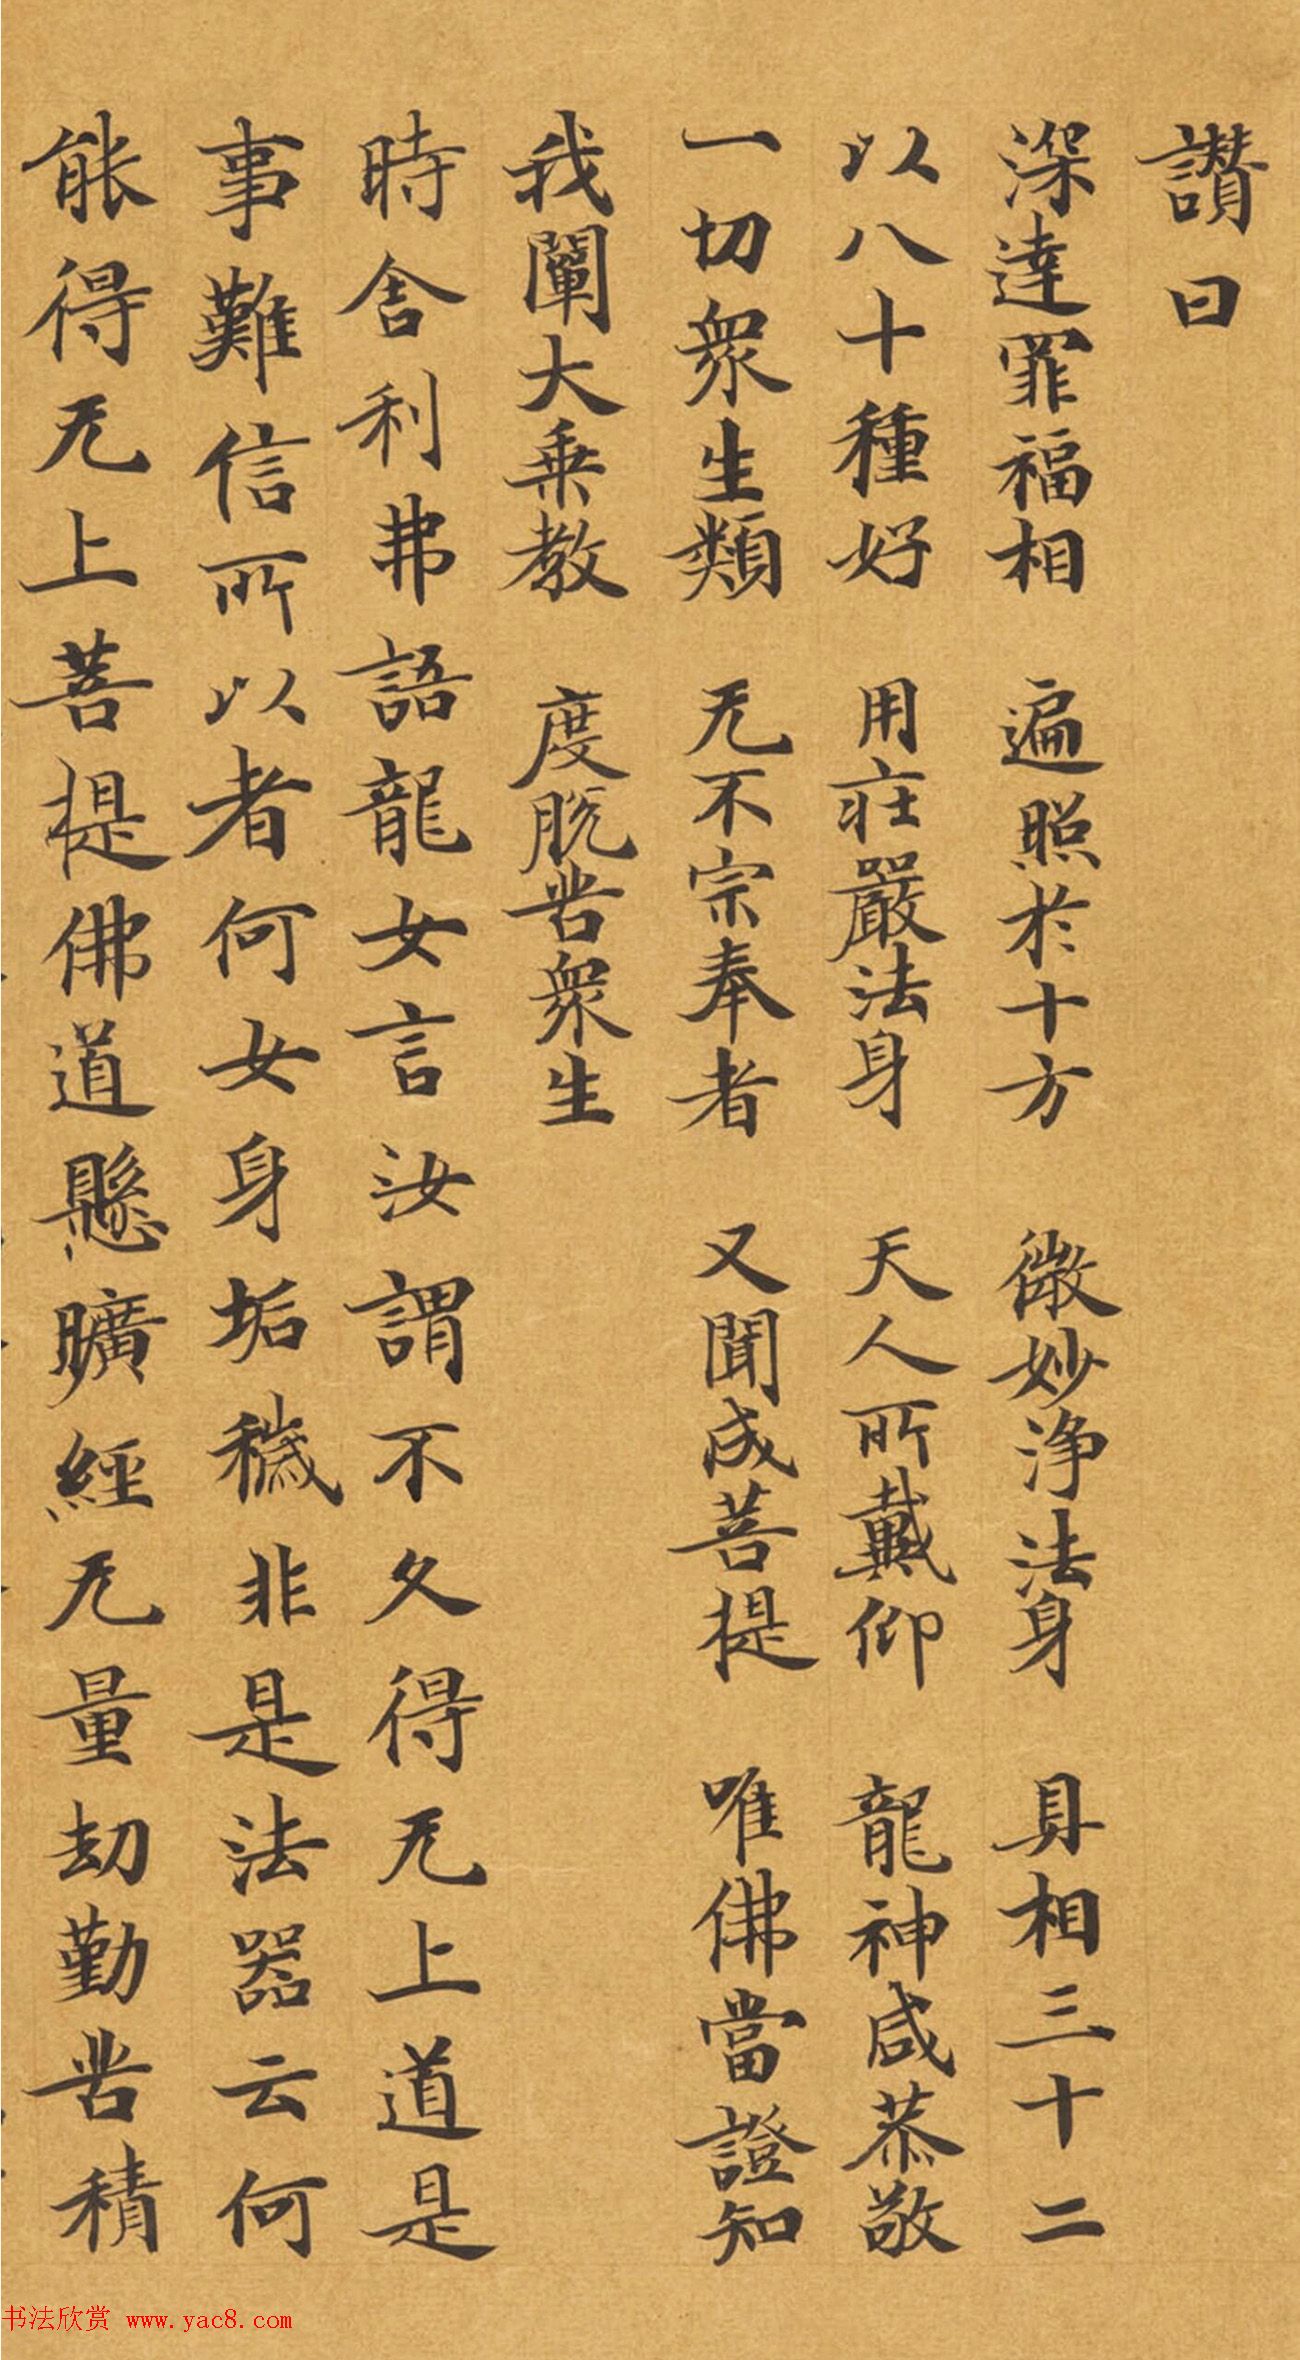 讚曰
深達罪福相 遍照於十方 微妙淨法身 具相三十二
以八十種好 用莊嚴法身 天人所戴仰 龍神咸恭敬
一切衆生類 无不宗奉者 又聞成菩提 唯佛當證知
我闡大乘教 度脫苦衆生
時舍利弗語龍女言汝謂不久得无上道是
事難信所以者何女身垢穢非是法器云何
能得无上菩提佛道懸曠經无量劫勤苦積
书法欣赏 www.yac8.com